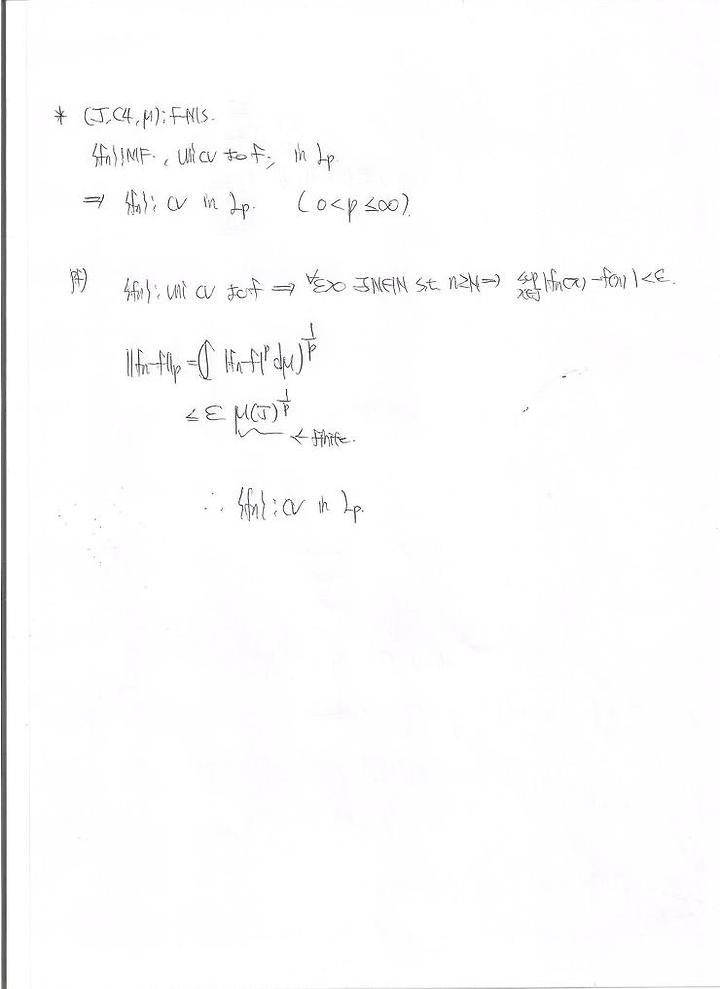 * (J, C4, μ) : FMS.
{fn} : MF., uni cv to f, in Lp.
⇒ {fn} : cv in Lp. (0<p≤∞).
pf) {fn} : uni cv to f ⇒ ∀ε>0 ∃N∈ℕ st n≥N ⇒ sup x∈J |fn(x) - f(x)| < ε.
||fn-f||p = (∫ |fn-f|^p dμ)^{1/p}
≤ ε μ(J)^{1/p}
← finite.
∴ {fn} : cv in Lp.